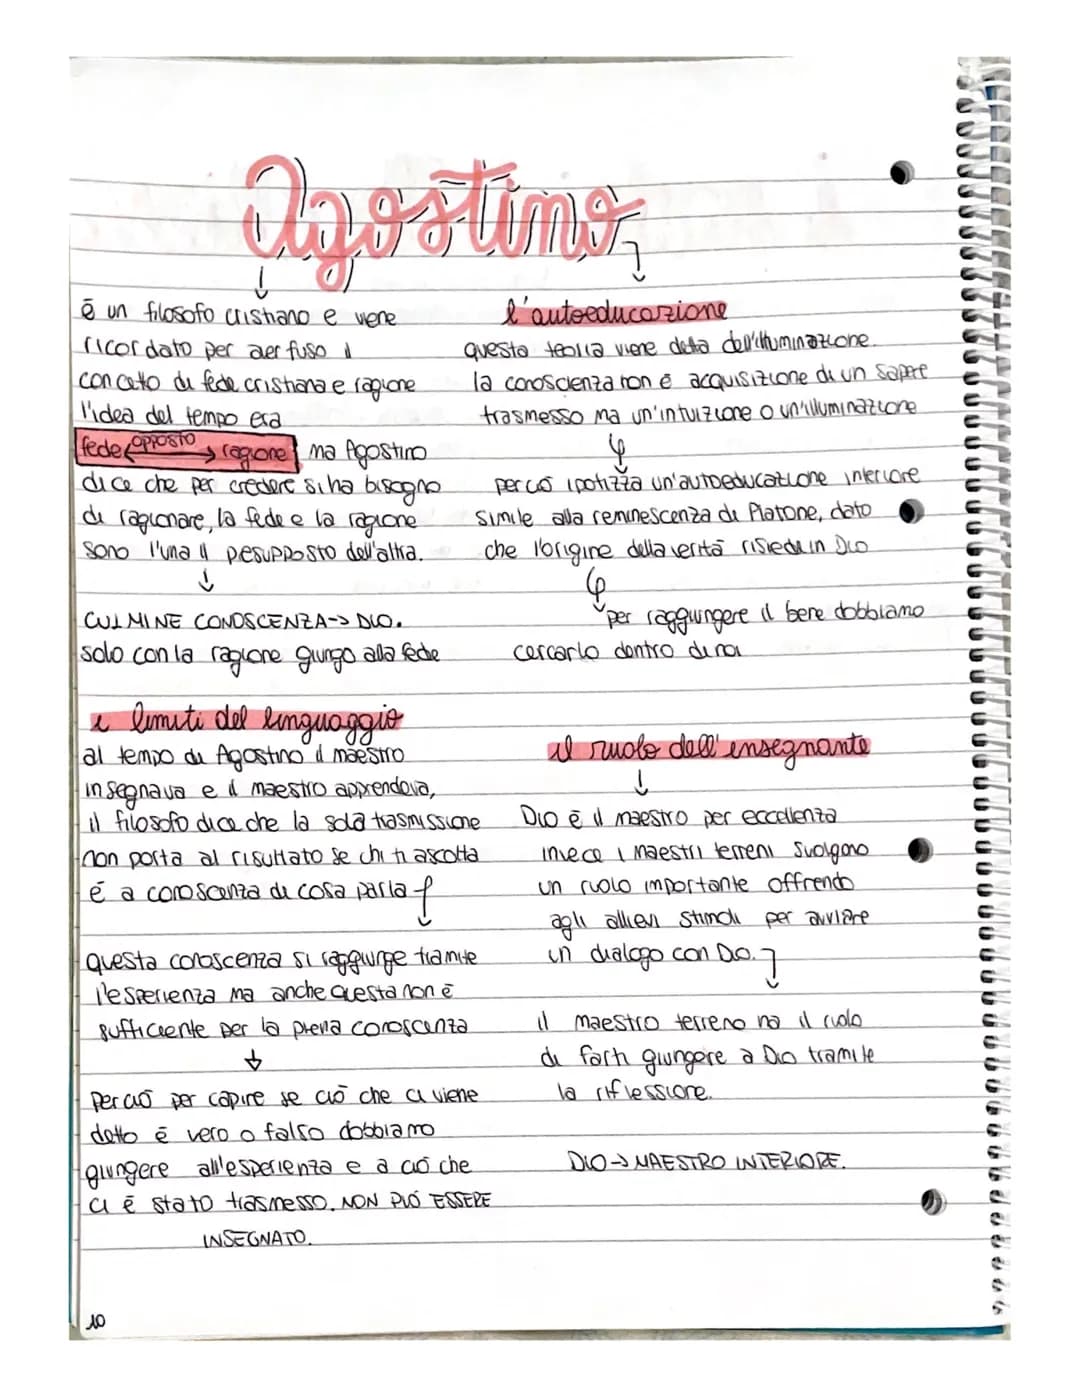 Agostino
è un filosofo cristiano e viene
ricordato per aer fuso il
concetto di fede cristiana e ragione
l'idea del tempo era
fede opposto ragione ma Agostino
dice che per credere si ha bisogno
di ragionare, la fede e la ragione
sono l'una il presupposto dell'altra.
CULMINE CONOSCENZA → DIO.
solo con la ragione giungo alla fede
l'autoeducazione
questa teoria viene detta dell'illuminazione.
la conoscienza non è acquisizione di un sapere
trasmesso ma un'intuizione o un'illuminazione
perciò ipotizza un'autoeducazione interiore
simile alla reminescenza di Platone, dato
che l'origine della verità risiede in Dio
per raggiungere il bene dobbiamo
cercarlo dentro di noi
i limiti del linguaggio
al tempo di Agostino il maestro
insegnava e il maestro apprendeva,
il filosofo dice che la sola trasmissione
non porta al risultato se chi ti ascolta
è a conoscenza di cosa parla
questa conoscenza si raggiunge tramite
l'esperienza ma anche questa non è
sufficiente per la piena conoscenza
perciò per capire se ciò che ci viene
detto è vero o falso dobbiamo
giungere all'esperienza e a ciò che
ci è stato trasmesso. NON PUÒ ESSERE
INSEGNATO.
il ruolo dell'insegnante
Dio è il maestro per eccellenza
invece i maestri terreni svolgono
un ruolo importante offrendo
agli allievi stimoli per avviare
un dialogo con Dio.
il maestro terreno ha il ruolo
di farti giungere a Dio tramite
la riflessione.
DIO → MAESTRO INTERIORE.
10